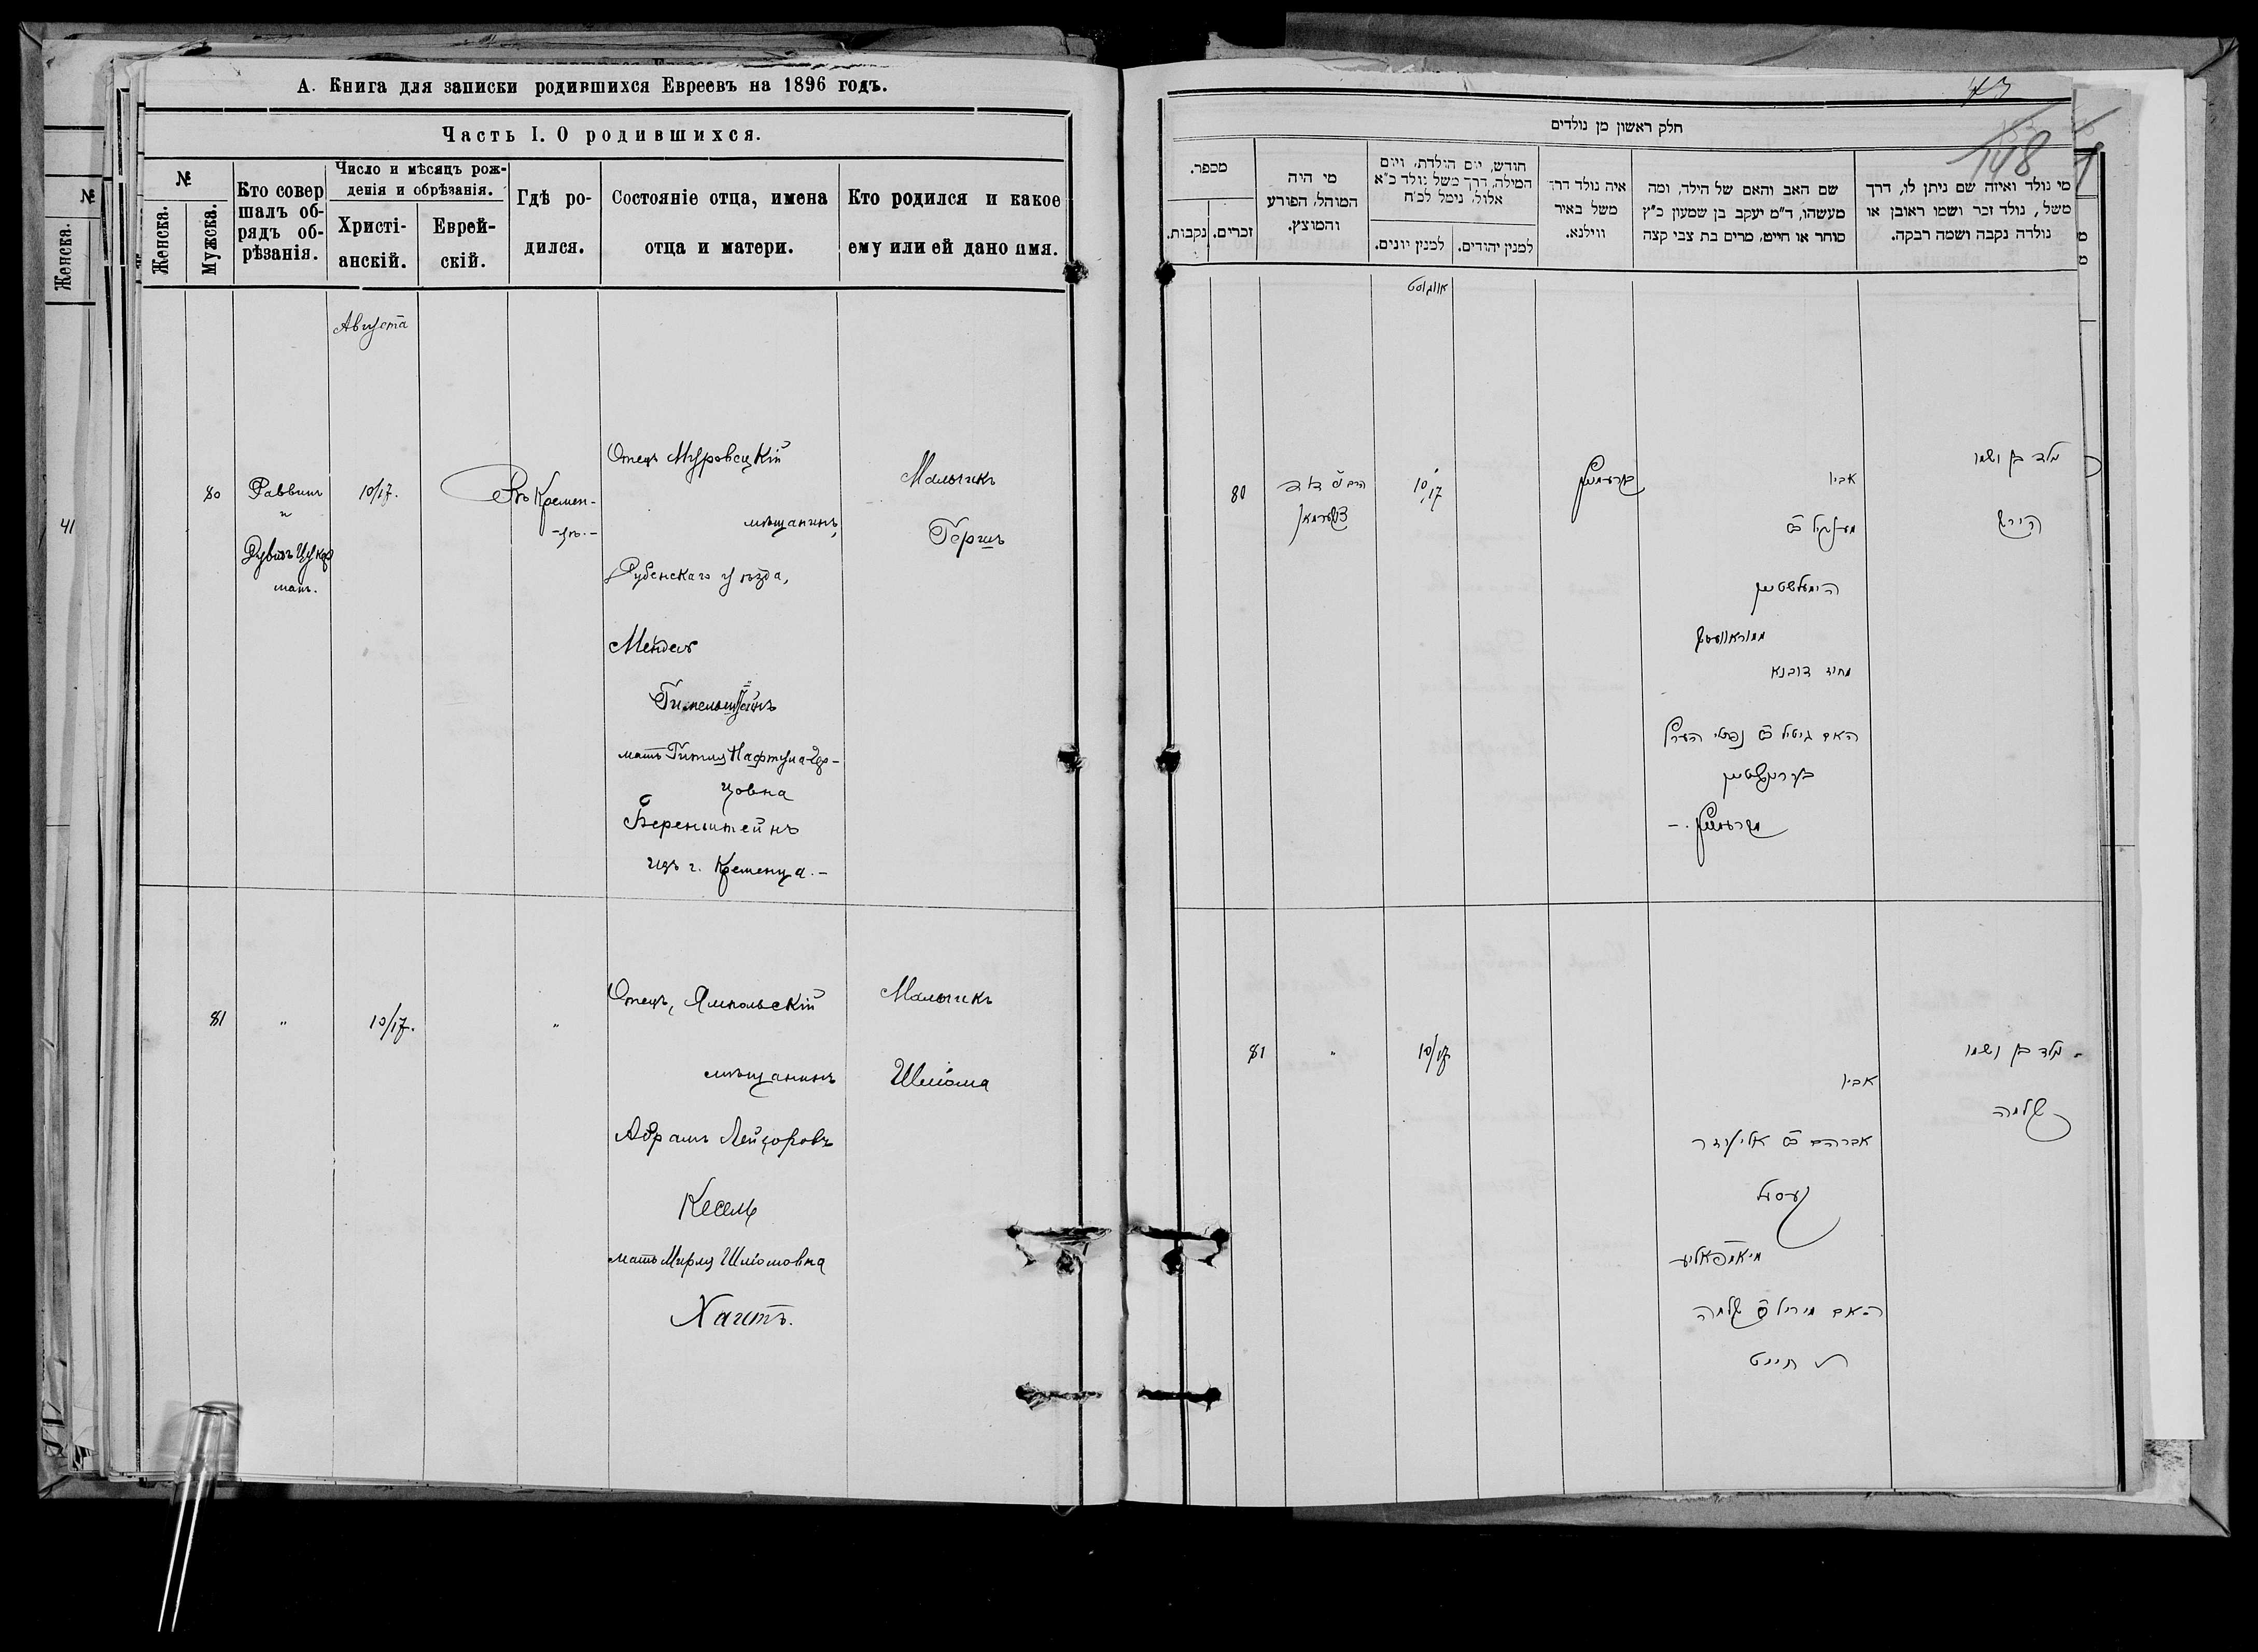 А. Книга для записки родившихся Евреевъ на 1896 годъ.
Часть I. О родившихся.
№
Женска.
Мужска.
Кто совер
шалъ об-
рядъ об-
рѣзанія.
Число и мѣсяцъ рож-
денія и обрѣзанія.
Христі-
анскій.
Еврей-
скій.
Гдѣ ро-
дился.
Состояніе отца, имена
отца и матери.
Кто родился и какое
ему или ей дано имя.
Августа
80
Раввинъ
и
Рувинъ Цукер
манъ.
10/17.
Въ Кремен-
-цѣ.-
Отецъ Муровецкій
мѣщанинъ,
Дубенскаго уѣзда,
Мендель
Гимельштейнъ
мать Гитля Нафтула-Гер-
цовна
Беренштейнъ
изъ г. Кременца.-
Мальчикъ
Гершъ
81
"
10/17.
"
Отецъ, Ямпольскій
мѣщанинъ
Абрамъ Лейзоровъ
Кесель
мать Мирля Шліомовна
Хаитъ.
Мальчикъ
Шліома
№
Женска.
41
73
148
חלק ראשון מן נולדים
מספר.
נקבות.
זכרים.
מי היה
המוהל, הפורע
והמוצץ.
חודש, יום הולדת, ויום
המילה, דרך משל נולד כ"א
אלול, נימל לכ"ח
למנין יונים.
למנין יהודים.
איה נולד דרך
משל באיר
ווילנא.
שם האב והאם של הילד, ומה
מעשהו, ד"מ יעקב בן שמעון כ"ץ
סוחר או חייט, מרים בת צבי קצה
מי נולד ואיזה שם ניתן לו, דרך
משל, נולד זכר ושמו ראובן או
נולדה נקבה ושמה רבקה.
אווגוסט
80
צוקערמאן
10/17
קרעמניץ
אביו
הימעלשטיין
מוראוויץ
מחוז דובנא
האם גיטיל נפתלי הערץ
בערינשטיין
מקרעמניץ.-
נולד בן ושמו
הירש
81
"
10/17
אביו
אברהם אליעזר
קעסיל
מיאמפאליע
האם מיריל שלמה
חייט
נולד בן ושמו
שלמה